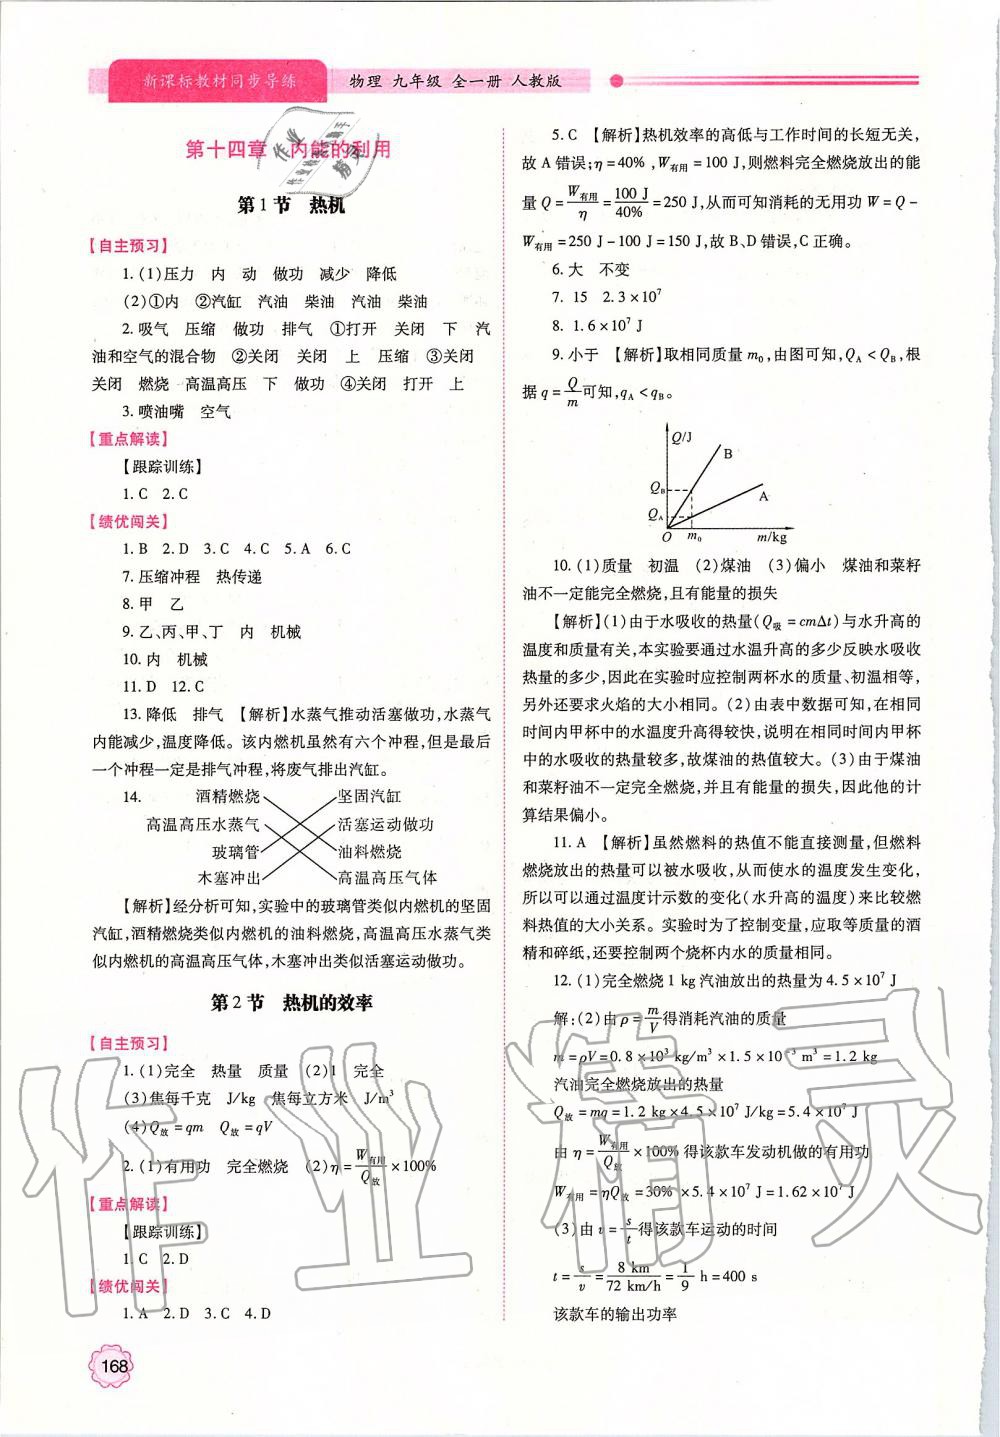 新课标教材同步导练
物理 九年级 全一册 人教版
第十四章 内能的利用
第1节 热机
【自主预习】
1. (1)压力 内 动 做功 减少 降低
(2)①内 ②汽缸 汽油 柴油 汽油 柴油
2. 吸气 压缩 做功 排气 ①打开 关闭 下 汽
油和空气的混合物 ②关闭 关闭 上 压缩 ③关闭
关闭 燃烧 高温高压 下 做功 ④关闭 打开 上
3. 喷油嘴 空气
【重点解读】
【跟踪训练】
1. C 2. C
【绩优闯关】
1. B 2. D 3. C 4. C 5. A 6. C
7. 压缩冲程 热传递
8. 甲 乙
9. 乙、丙、甲、丁 内 机械
10. 内 机械
11. D 12. C
13. 降低 排气 【解析】水蒸气推动活塞做功,水蒸气
内能减少,温度降低。该内燃机虽然有六个冲程,但是最后
一个冲程一定是排气冲程,将废气排出汽缸。
14. 酒精燃烧 坚固汽缸
高温高压水蒸气 活塞运动做功
玻璃管 油料燃烧
木塞冲出 高温高压气体
【解析】经分析可知,实验中的玻璃管类似内燃机的坚固
汽缸,酒精燃烧类似内燃机的油料燃烧,高温高压水蒸气类
似内燃机的高温高压气体,木塞冲出类似活塞运动做功。
第2节 热机的效率
【自主预习】
1. (1)完全 热量 质量 (2)1 完全
(3)焦每千克 J/kg 焦每立方米 J/m³
(4)Q放=qm Q放=qV
2. (1)有用功 完全燃烧 (2)η=W有用/Q放×100%
【重点解读】
【跟踪训练】
1. C 2. D
【绩优闯关】
1. A 2. D 3. C 4. D
168
5. C 【解析】热机效率的高低与工作时间的长短无关,
故 A 错误;η=40%,W有用=100 J,则燃料完全燃烧放出的能
量 Q=W有用/η=100 J/40%=250 J,从而可知消耗的无用功 W=Q-
W有用=250 J-100 J=150 J,故 B、D 错误,C 正确。
6. 大 不变
7. 15 2.3×10⁷
8. 1.6×10⁷ J
9. 小于 【解析】取相同质量 m₀,由图可知,Q_A<Q_B,根
据 q=Q/m可知,q_A<q_B。
Q/J
B
Q_B
A
Q_A
O m₀ m/kg
10. (1)质量 初温 (2)煤油 (3)偏小 煤油和菜籽
油不一定能完全燃烧,且有能量的损失
【解析】(1)由于水吸收的热量(Q吸=cmΔt)与水升高的
温度和质量有关,本实验要通过水温升高的多少反映水吸收
热量的多少,因此在实验时应控制两杯水的质量、初温相等,
另外还要求火焰的大小相同。(2)由表中数据可知,在相同
时间内甲杯中的水温度升高得较快,说明在相同时间内甲杯
中的水吸收的热量较多,故煤油的热值较大。(3)由于煤油
和菜籽油不一定完全燃烧,并且有能量的损失,因此他的计
算结果偏小。
11. A 【解析】虽然燃料的热值不能直接测量,但燃料
燃烧放出的热量可以被水吸收,从而使水的温度发生变化,
所以可以通过温度计示数的变化(水升高的温度)来比较燃
料热值的大小关系。实验时为了控制变量,应取等质量的酒
精和碎纸,还要控制两个烧杯内水的质量相同。
12. (1)完全燃烧 1 kg 汽油放出的热量为 4.5×10⁷ J
解:(2)由 ρ=m/V得消耗汽油的质量
m=ρV=0.8×10³ kg/m³×1.5×10⁻³ m³=1.2 kg
汽油完全燃烧放出的热量
Q放=mq=1.2 kg×4.5×10⁷ J/kg=5.4×10⁷ J
由 η=W有用/Q放×100%得该款车发动机做的有用功
W有用=ηQ放=30%×5.4×10⁷ J=1.62×10⁷ J
(3)由 v=s/t得该款车运动的时间
t=s/v=8 km/72 km/h=1/9 h=400 s
该款车的输出功率
作业精灵